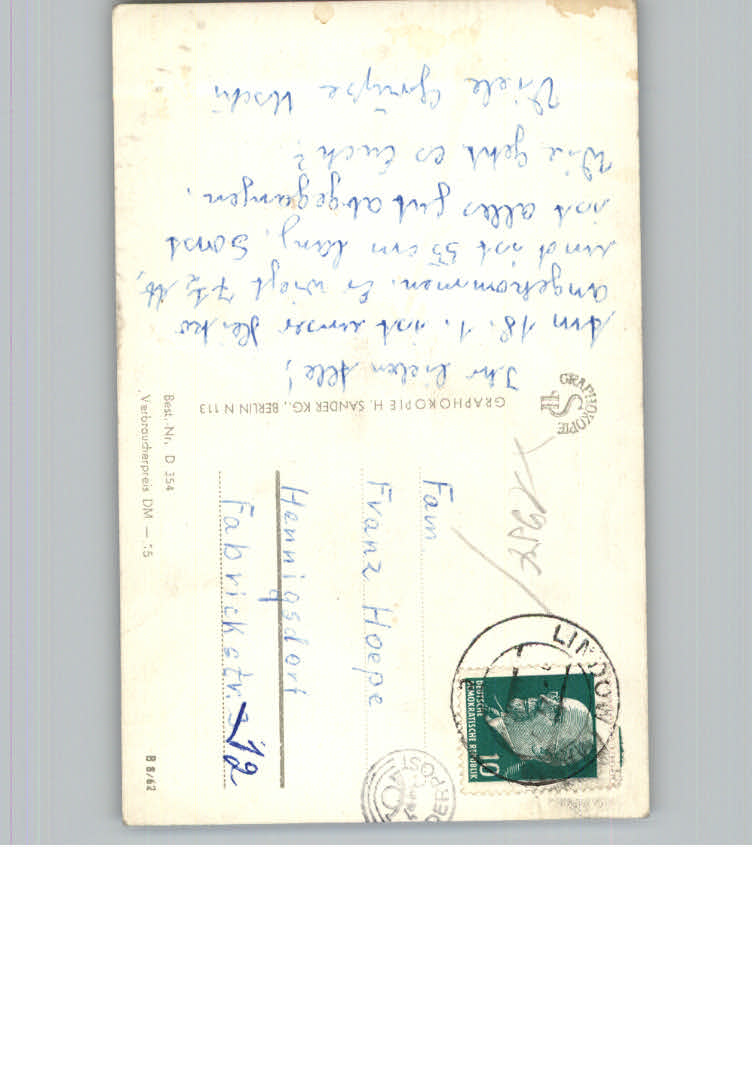 Ihr lieben Alle!
Am 18. 1. ist unser Heiko
angekommen. Er wiegt 7½ ℔,
und ist 55 cm lang. Sonst
ist alles gut abgegangen.
Wie geht es Euch?
Viele Grüße Uschi
GRAPHOKOPIE H. SANDER KG., BERLIN N 113
GRAPHOKOPIE
HS
Best.-Nr. D 354
Verbraucherpreis DM —
Fam
Franz Hoepe
Hennigsdorf
Fabrickstr. 12
B 8/62
LINDOW
DEUTSCHE
DEMOKRATISCHE REPUBLIK
10